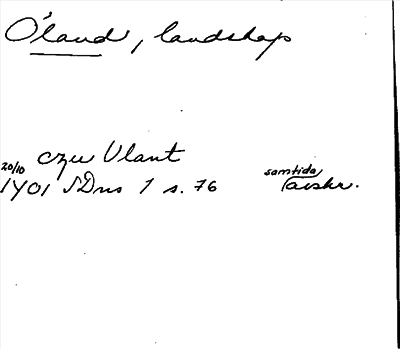 Öland, landskap
czu Ulant
20/10 samtida
1401 SDns 1 s. 76 avskr.